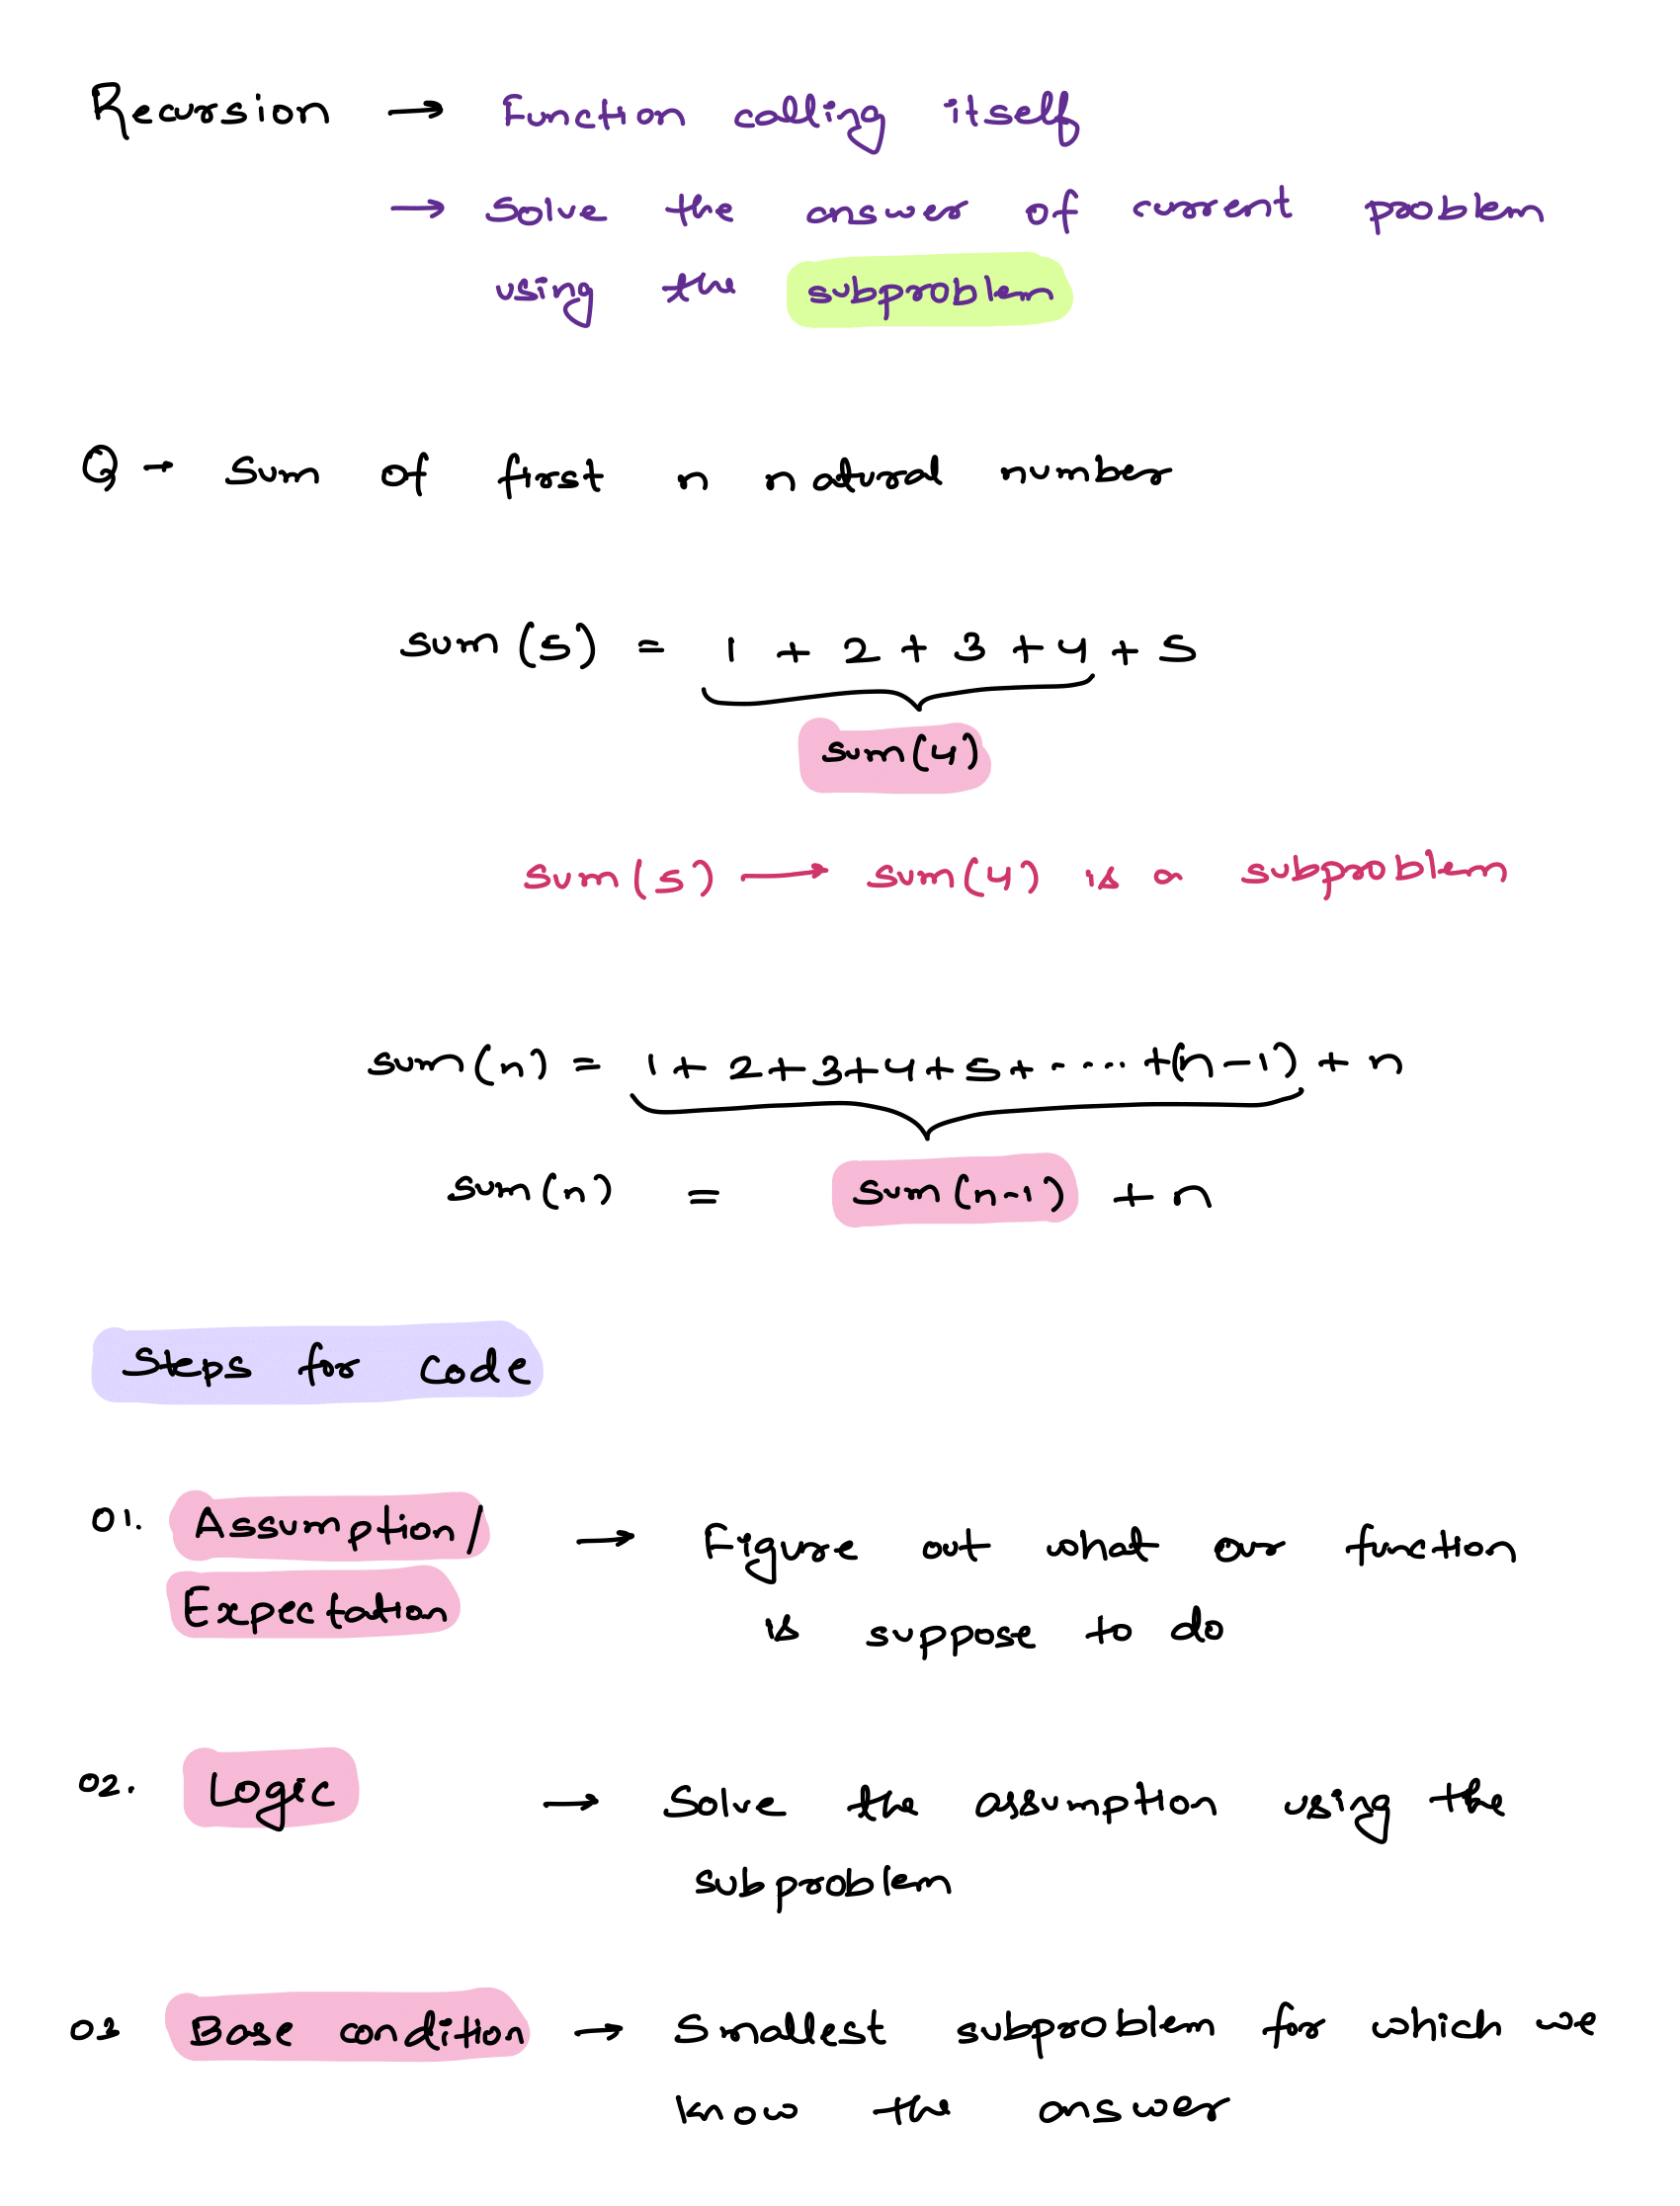 Recursion → Function calling itself
→ Solve the answer of current problem
using the subproblem
Q → Sum of first n natural number
sum(5) = 1 + 2 + 3 + 4 + 5
sum(4)
sum(5) → sum(4) is a subproblem
sum(n) = 1 + 2 + 3 + 4 + 5 + ..... + (n-1) + n
sum(n) = sum(n-1) + n
Steps for code
01. Assumption/ → Figure out what our function
Expectation is suppose to do
02. Logic → Solve the assumption using the
subproblem
03 Base condition → Smallest subproblem for which we
know the answer